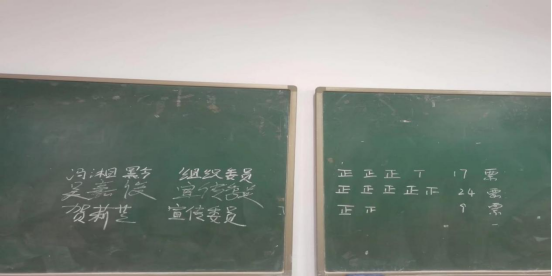 冯湘黔 组织委员
吴嘉俊 宣传委员
贺莉芝 宣传委员
正 正 正 丅 17 票
正 正 正 正 正 24 票
正 正 9 票